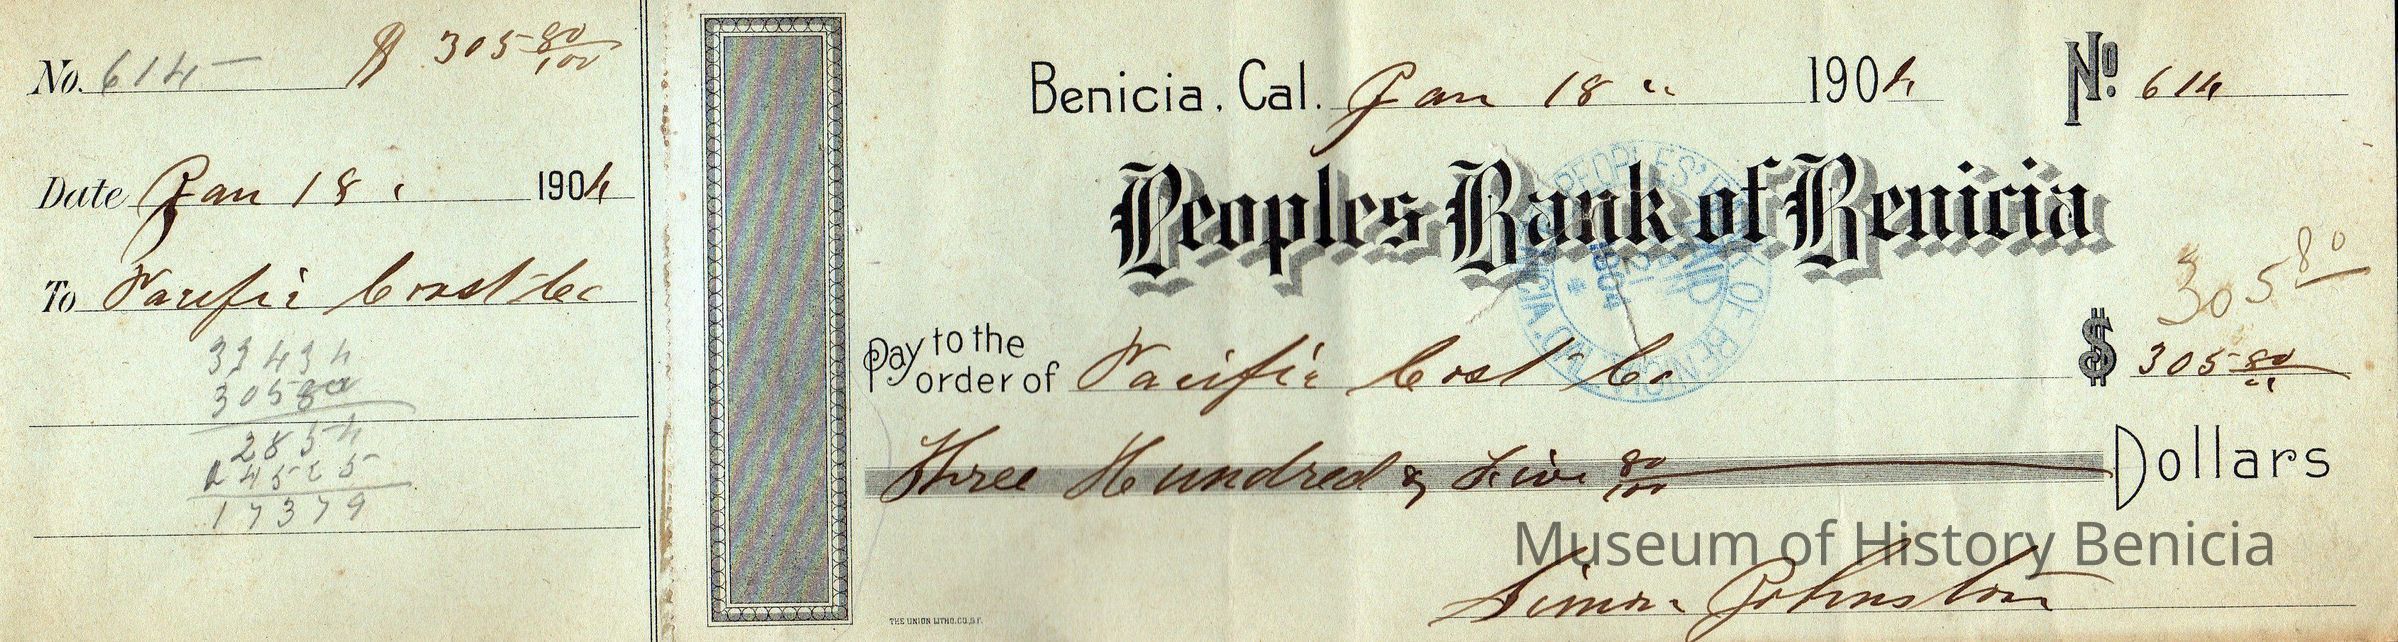 No. 614 $ 305 80/100
Date Jan 18 1904
To Pacific Coast Co
33434
30580
2854
14525
17379
Benicia, Cal. Jan 18 " 1904 No. 614
Peoples Bank of Benicia
305 80
Pay to the order of Pacific Cost Co $ 305 80/"
Three Hundred & Five 80/100 Dollars
Museum of History Benicia
Simon Johnston
THE UNION LITHO. CO., S.F.
PEOPLES' BANK OF BENICIA
PAID